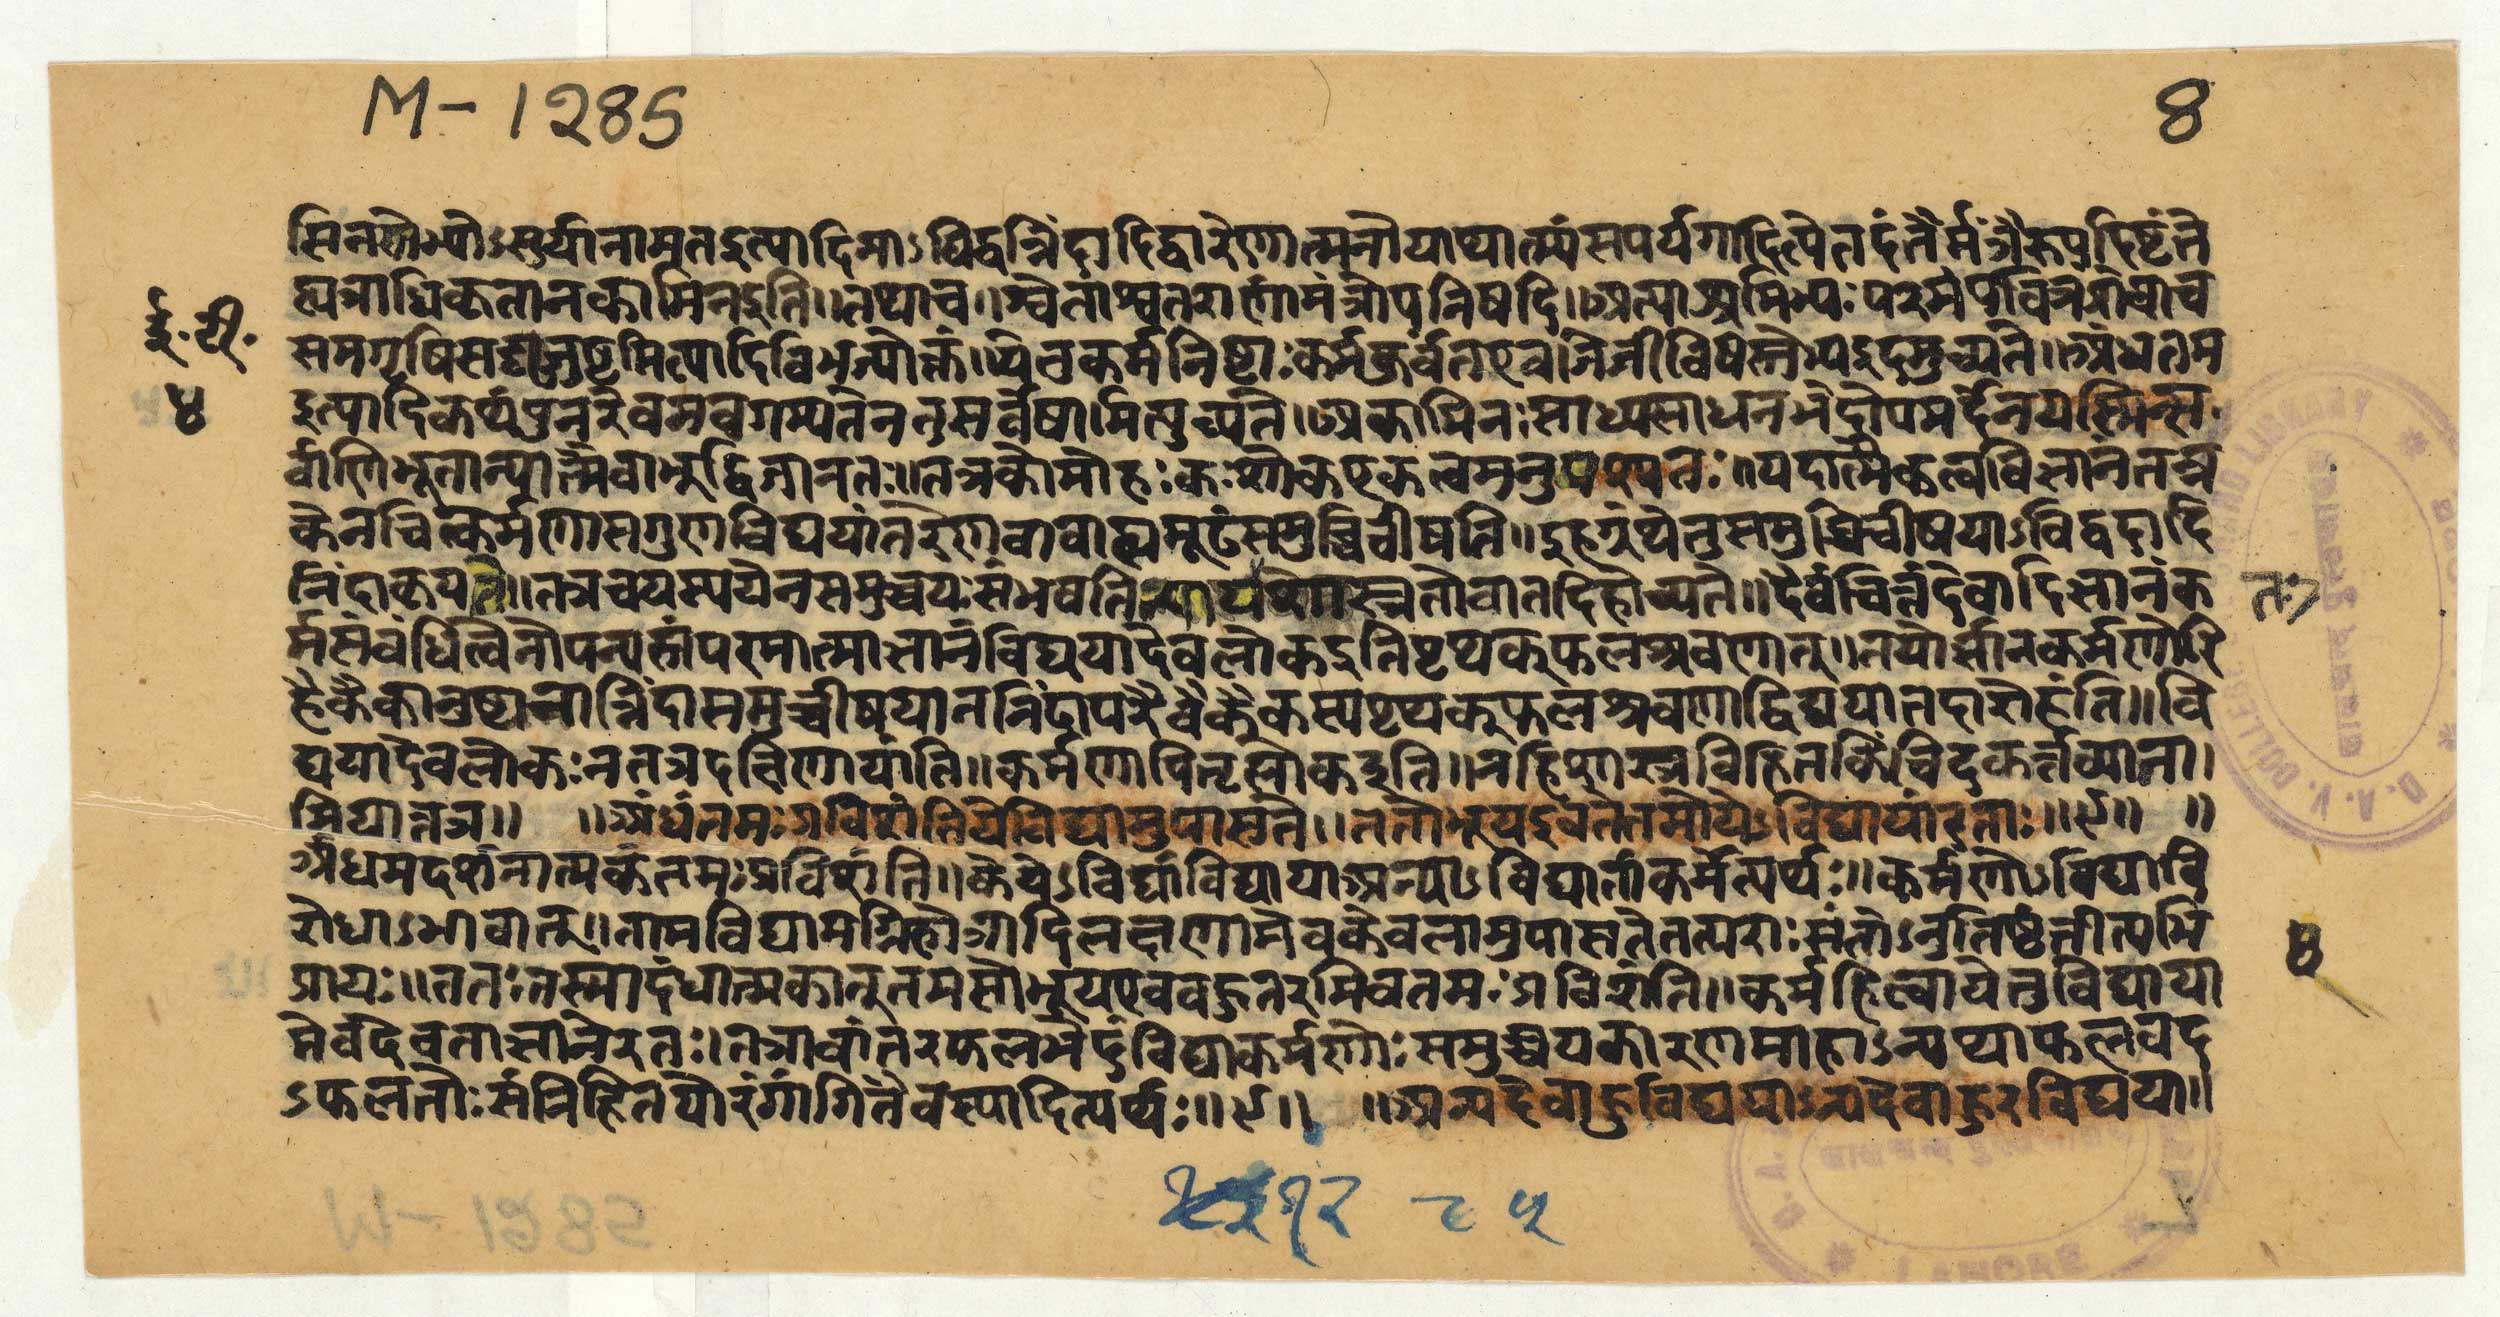 M-1285
8
ई. टी.
४
सिनस्तेभ्योऽसुर्यानामतइत्यादिनाऽविद्वन्निंदादिद्वारेणात्मनोयाथात्म्यंसपर्यगादित्येतदंतैर्मंत्रैरुपदिष्टंते
ह्यत्राधिकृतानकामिनइति॥तथाच॥श्वेताश्वतराणांमंत्रोपनिषदि॥अत्याश्रमिभ्यःपरमंपवित्रंप्रोवाच
सम्यगृषिसंघजुष्टमित्यादिविभज्योक्तं॥येतुकर्मनिष्ठाःकर्मकुर्वंतएवजिजीविषंस्तेभ्यइदमुच्यते॥अंधंतम
इत्यादिकथंपुनरेवमवगम्यतेनतुसर्वेषामित्युच्यते॥अकामिनःसाध्यसाधनभेदोपमर्देनयस्मिन्स
र्वाणिभूतान्यात्मैवाभूद्विजानतः॥तत्रकोमोहःकःशोकएकत्वमनुपश्यतः॥यदात्मैकत्वविज्ञानंतन्न
केनचित्कर्मणासगुणविद्ययांतरेणवावाह्यमूढःसमुच्चिचीषति॥इहग्रंथेतुसमुच्चिचीषयाऽविद्वदादि
निंदाकृयते॥तत्रचयस्ययेनसमुच्चयःसंभवतिन्यायशास्त्रतोवातदिहोच्यते॥दैवंवित्तंदेवादिज्ञानंक
तः
र्मसंबंधित्वेनोपन्यस्तंपरमात्मज्ञानंविद्ययादेवलोकइतिपृथक्फलश्रवणात्॥तयोर्ज्ञानकर्मणोरि
हैकैकानुष्ठानान्निंदासमुच्चीषयाननिंदापरैवैकैकस्यपृथक्फलश्रवणाद्विद्ययातदारोहंति॥वि
द्ययादेवलोकःनतत्रदक्षिणायांति॥कर्मणापितृलोकइति॥नहिशास्त्रविहितंकिंचिदकर्तव्यतां
मियात्तत्र॥ ॥अंधंतमःप्रविशंतियेविद्यामुपासते॥ततोभूयइवतेतमोयेऽविद्यायांरताः॥९॥ ॥
अंधमदर्शनात्मकंतमःप्रविशंति॥केयेऽविद्यांविद्यायाअन्याऽविद्यातांकर्मेत्यर्थः॥कर्मणोऽविद्यावि
रोधाऽभावात्॥तामविद्यामग्निहोत्रादिलक्षणामेवकेवलामुपासतेतत्पराःसंतोऽनुतिष्ठंतीत्यभि
४
प्रायः॥ततःतस्मादंधात्मकात्तमसोभूयएवबहुतरमिवतमःप्रविशंति॥कर्महित्वायेतुविद्याया
मेवदेवताज्ञानेरतः।तत्रावांतरफलभेदंविद्याकर्मणोःसमुच्चयकारणमाहाऽन्यथाफलवद
ऽफलतोःसंन्निहितयोरंगांगितैवस्यादित्यर्थः॥९॥ ॥अन्यदेवाहुर्विद्ययाऽन्यदेवाहुरविद्यया॥
D.A.V. COLLEGE
LIBRARY
LAHORE